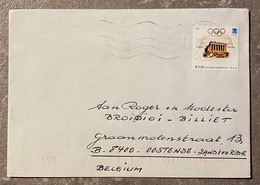 Aan Roger en Modesta
BROIDIOI - BILLIET
Graanmolenstraat 13,
B. 8400 - OOSTENDE - ZANDVOORDE
BELGIUM